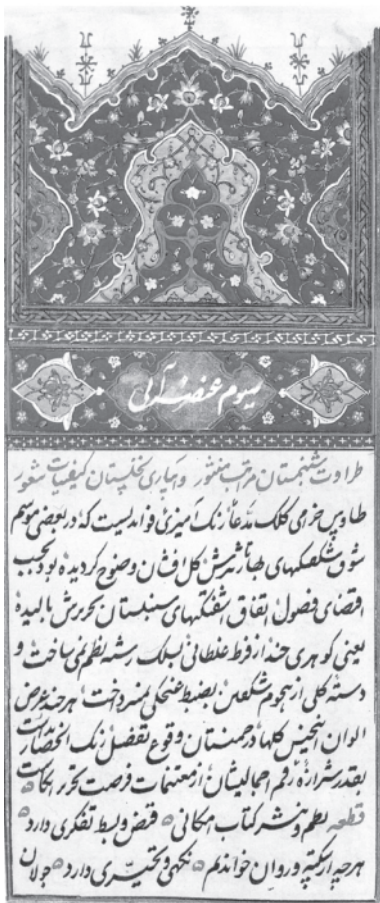 سیوم عنصر آبی
طراوت شبنمستان مراتب منثور و آبیاری نخلستان کیفیات شعور
طاوس خرامی کلک مدعا رنک آمیزی فوائدیست که در بعضی موسم
شوق شکفتکیهای بهار تاثیرش کل افشان وضوح کردیده بود و بحسب
اقتضای فصول اتفاق آشفتکیهای سنبلستان تحریرش بالیده
یعنی کوهری چند از فرط غلطانی بسلک رشته نظم نمی ساخت و
دسته کلی از هجوم شکفتن بضبط غنچکی نمیپرداخت هرچند عرض
الوان اینجنس کلها در چمنستان وقوع بتفصیل رنک انحصار نداشت
بقدر شیرازه رقم اجمالیشان از مغتنمات فرصت تحریر انکاشت
قطعه نظم و نثر کتاب امکانی قبض و بسط تفکری دارد
هرچه از سکته و روان خواندیم نکهی و تحیری دارد جولان